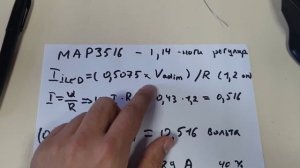 MAP3516 - 1,14 - ноги регулир
I iLED = (0,5075 × Vadim) / R (1,2 ом
I = U/R => I · R 0,43 · 1,2 = 0,516
(0, = 12,516 вольта
А 40 %